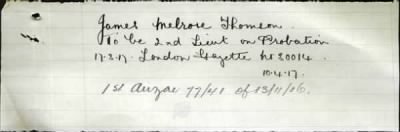 James Melrose Thomson.
To be 2nd Lieut on Probation
17.3.17. London Gazette No 30014.
10.4.17.
1st Anzac 77/41 of 13/11/16.